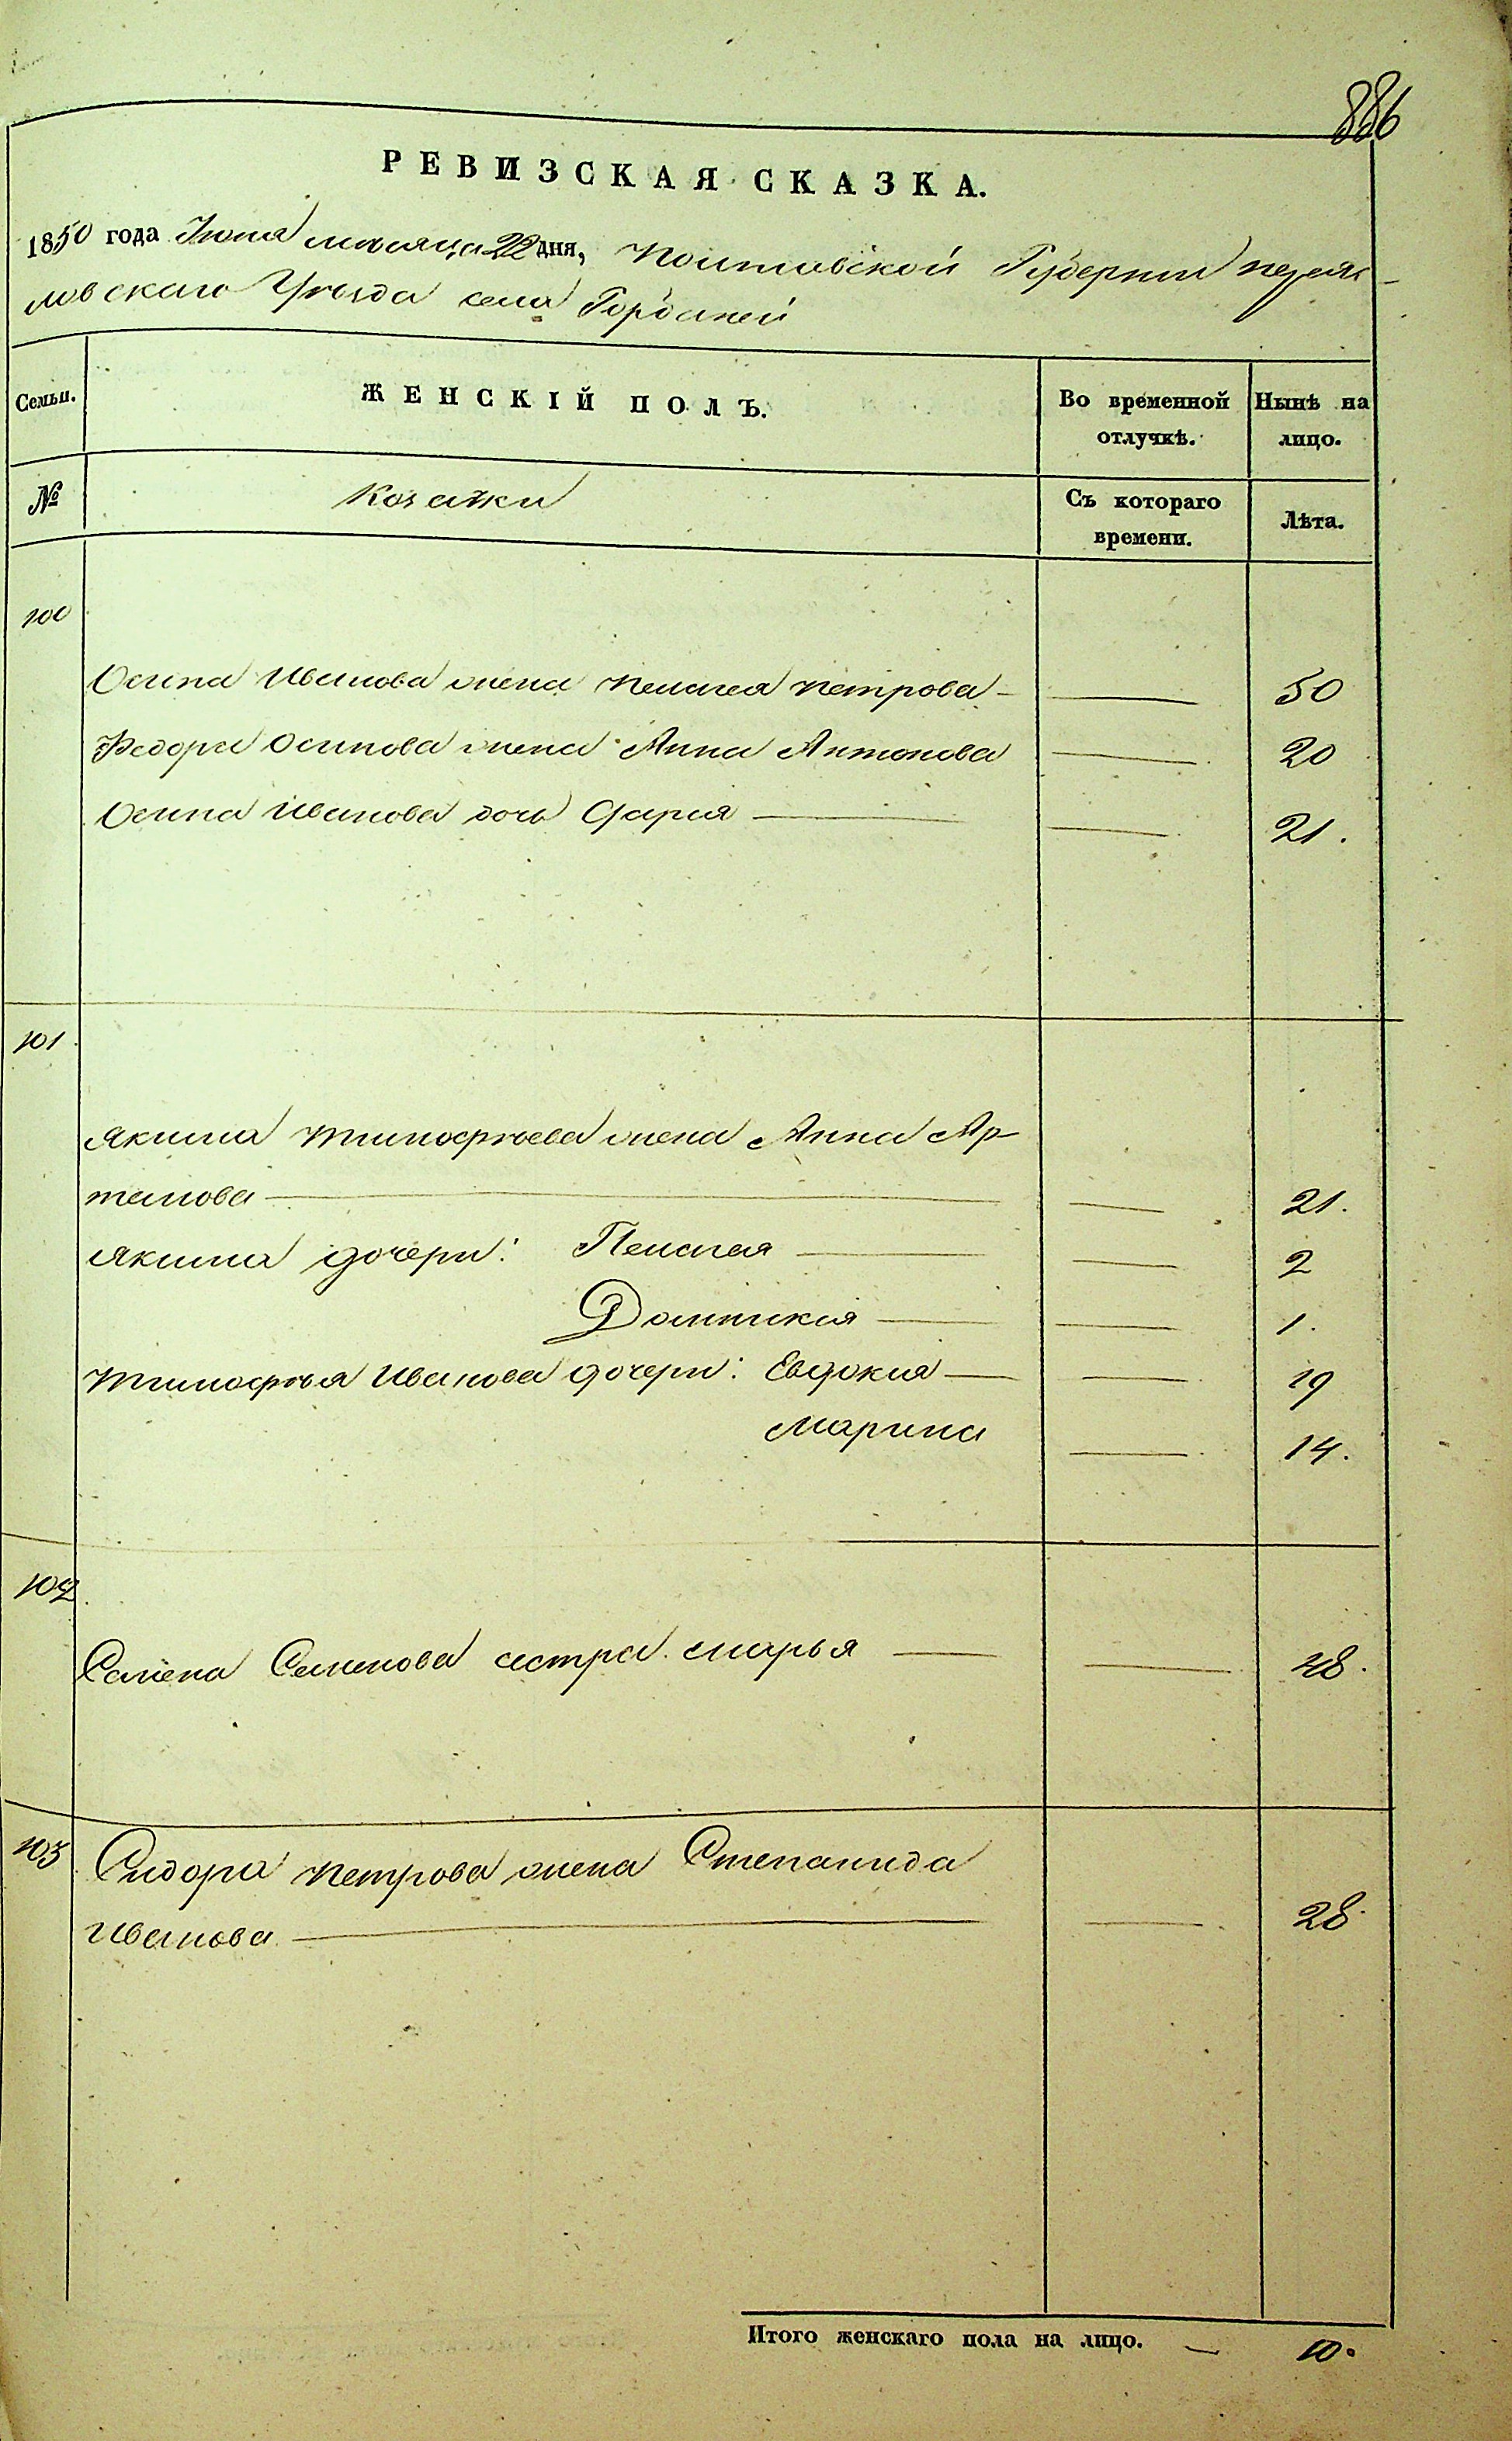 886
РЕВИЗСКАЯ СКАЗКА.
1850 года Июня месяца 22 дня, Полтавской Губернии переяс-
лавскаго Уѣзда села Горбаней
Семьи.
ЖЕНСКІЙ ПОЛЪ.
Во временной отлучкѣ.
Нынѣ на лицо.
№
Козачки
Съ котораго времени.
Лѣта.
100
Осипа Иванова жена Пелагея Петрова 50
Федора Осипова жена Анна Антонова 20
Осипа Иванова дочь Дарья 21.
101
Якима Тимофѣева жена Анна Ар-
тамова 21.
Якима дочери: Пелагея 2
Домникия 1.
Тимофѣя Иванова дочери: Евдокия 19
Марина 14.
102
Семена Семенова сестра Марья 48.
103 Сидора Петрова жена Степанида
Иванова 28.
Итого женскаго пола на лицо. 10.